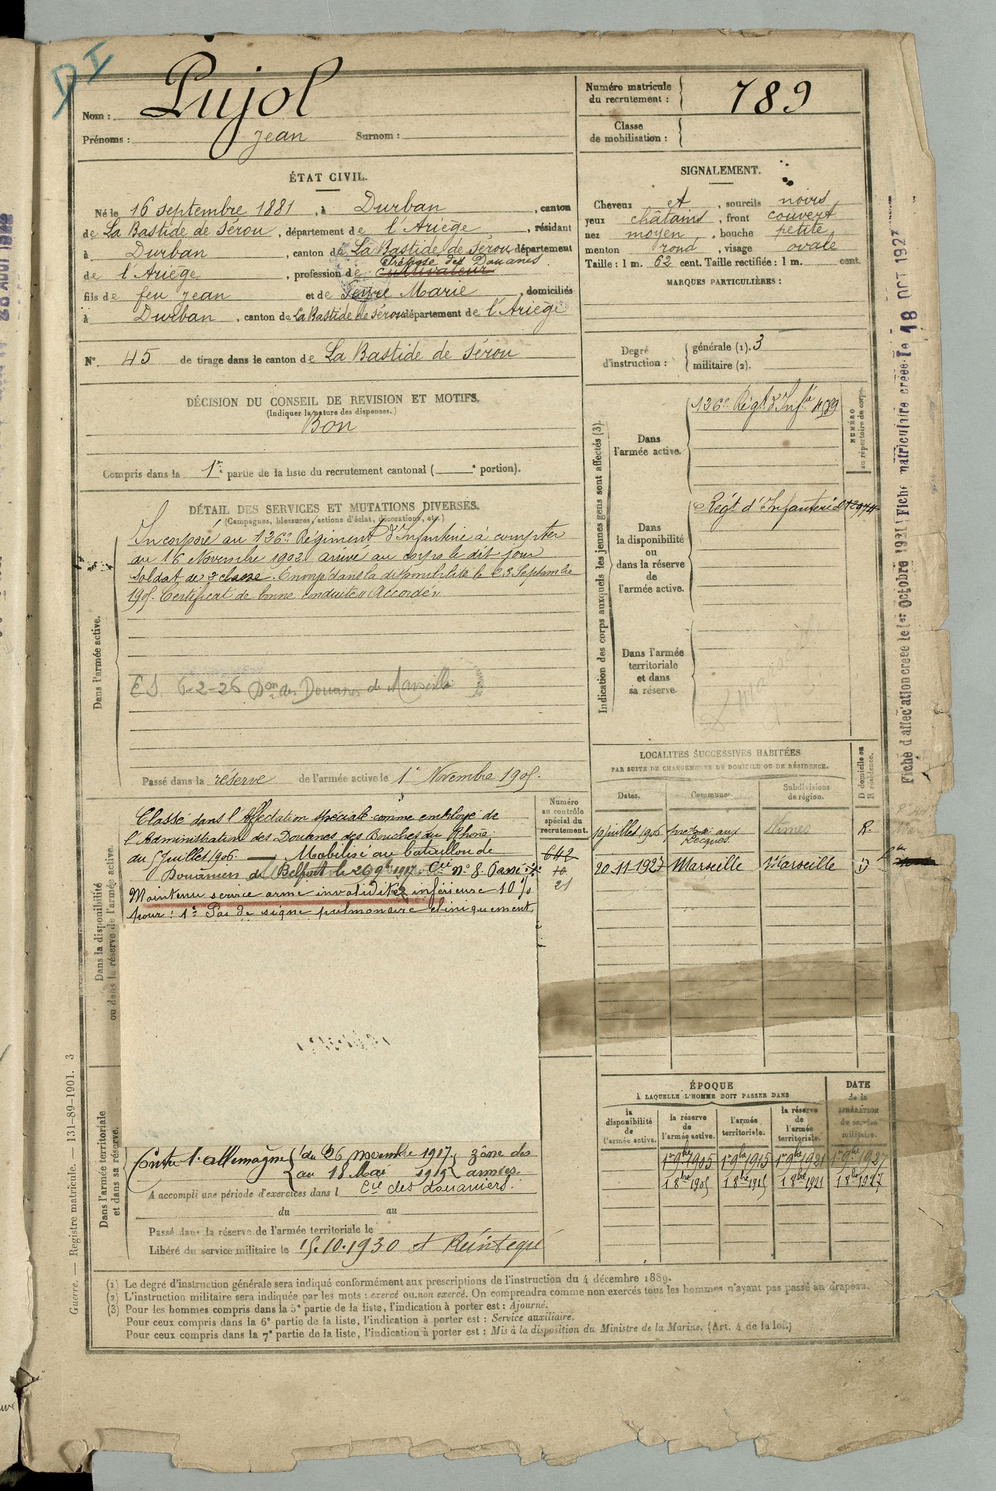 DI
Nom : Pujol
Prénoms : Jean Surnom :
Numéro matricule du recrutement : 789
Classe de mobilisation :
ÉTAT CIVIL.
Né le 16 septembre 1881, à Durban, canton
de La Bastide de Sérou, département de l'Ariège, résidant
à Durban, canton de La Bastide de Sérou département
Préposé des Douanes.
de l'Ariège, profession de cultivateur
fils de feu Jean et de Marie, domiciliés
à Durban, canton de La Bastide de Sérou département de l'Ariège
N° 45 de tirage dans le canton de La Bastide de Sérou
SIGNALEMENT.
Cheveux et, sourcils noirs
yeux châtains, front couvert
nez moyen, bouche petite
menton rond, visage ovale
Taille : 1 m. 62 cent. Taille rectifiée : 1 m. cent.
MARQUES PARTICULIÈRES :
Degré d'instruction : générale (1). 3
militaire (2).
DÉCISION DU CONSEIL DE REVISION ET MOTIFS.
(Indiquer la nature des dispenses.)
Bon
Compris dans la 1re partie de la liste du recrutement cantonal ( portion).
DÉTAIL DES SERVICES ET MUTATIONS DIVERSES.
(Campagnes, blessures, actions d'éclat, décorations, etc.)
Dans l'armée active.
Incorporé au 136e Régiment d'Infanterie à compter
du 16 Novembre 1902 arrivé au corps le dit jour
soldat de 2e classe. Envoyé dans la disponibilité le 23 Septembre
1905. Certificat de bonne conduite "Accordé"
E.S. 6-2-26 Don des Douanes de Marseille
Passé dans la réserve de l'armée active le 1er Novembre 1905.
Indication des corps auxquels les jeunes gens sont affectés (3).
Dans l'armée active.
136e Régt d'Infie
NUMÉRO au répertoire du corps.
Dans la disponibilité ou dans la réserve de l'armée active.
Régt d'Infanterie
Dans l'armée territoriale et dans sa réserve.
Fiche d'affectation créée le 1er Octobre 1931
Fiche matriculaire créée le 18 OCT 1927
LOCALITÉS SUCCESSIVES HABITÉES
PAR SUITE DE CHANGEMENTS DE DOMICILE OU DE RÉSIDENCE.
Dates. Communes. Subdivisions de région. D domicile ou R résidence.
juillet 1906 Nîmes R.
20.11.1927 Marseille Marseille D
Dans la disponibilité ou dans la réserve de l'armée active.
Numéro au contrôle spécial du recrutement.
Classé dans l'affectation spéciale comme employé de
l'Administration des Douanes des Bouches du Rhône
du juillet 1906. Mobilisé au bataillon de
Douaniers de Belfort le
Maintenu service armé invalidité inférieure 10 %
pour : 1° Pas de signe pulmonaire cliniquement
21
Dans l'armée territoriale et dans sa réserve.
Contre l'Allemagne du 26 novembre 1917 zône des
au 18 Mai 1919 armées.
A accompli une période d'exercices dans l Cie des douaniers.
du au
Passé dans la réserve de l'armée territoriale le
Libéré du service militaire le 15.10.1930
ÉPOQUE
À LAQUELLE L'HOMME DOIT PASSER DANS
la disponibilité de l'armée active. la réserve de l'armée active. l'armée territoriale. la réserve de l'armée territoriale.
DATE de la LIBÉRATION du service militaire.
1er 9bre 1905 1er 9bre 1915 1er 9bre 1921 1er 9bre 1927
1 8bre 1905 1 8bre 1915 1 8bre 1921 1 8bre 1927
(1) Le degré d'instruction générale sera indiqué conformément aux prescriptions de l'instruction du 4 décembre 1889.
(2) L'instruction militaire sera indiquée par les mots : exercé ou non exercé. On comprendra comme non exercés tous les hommes n'ayant pas passé au drapeau.
(3) Pour les hommes compris dans la 5e partie de la liste, l'indication à porter est : Ajourné.
Pour ceux compris dans la 6e partie de la liste, l'indication à porter est : Service auxiliaire.
Pour ceux compris dans la 7e partie de la liste, l'indication à porter est : Mis à la disposition du Ministre de la Marine. (Art. 4 de la loi.)
Guerre. — Registre matricule. — 131-89-1901. 3